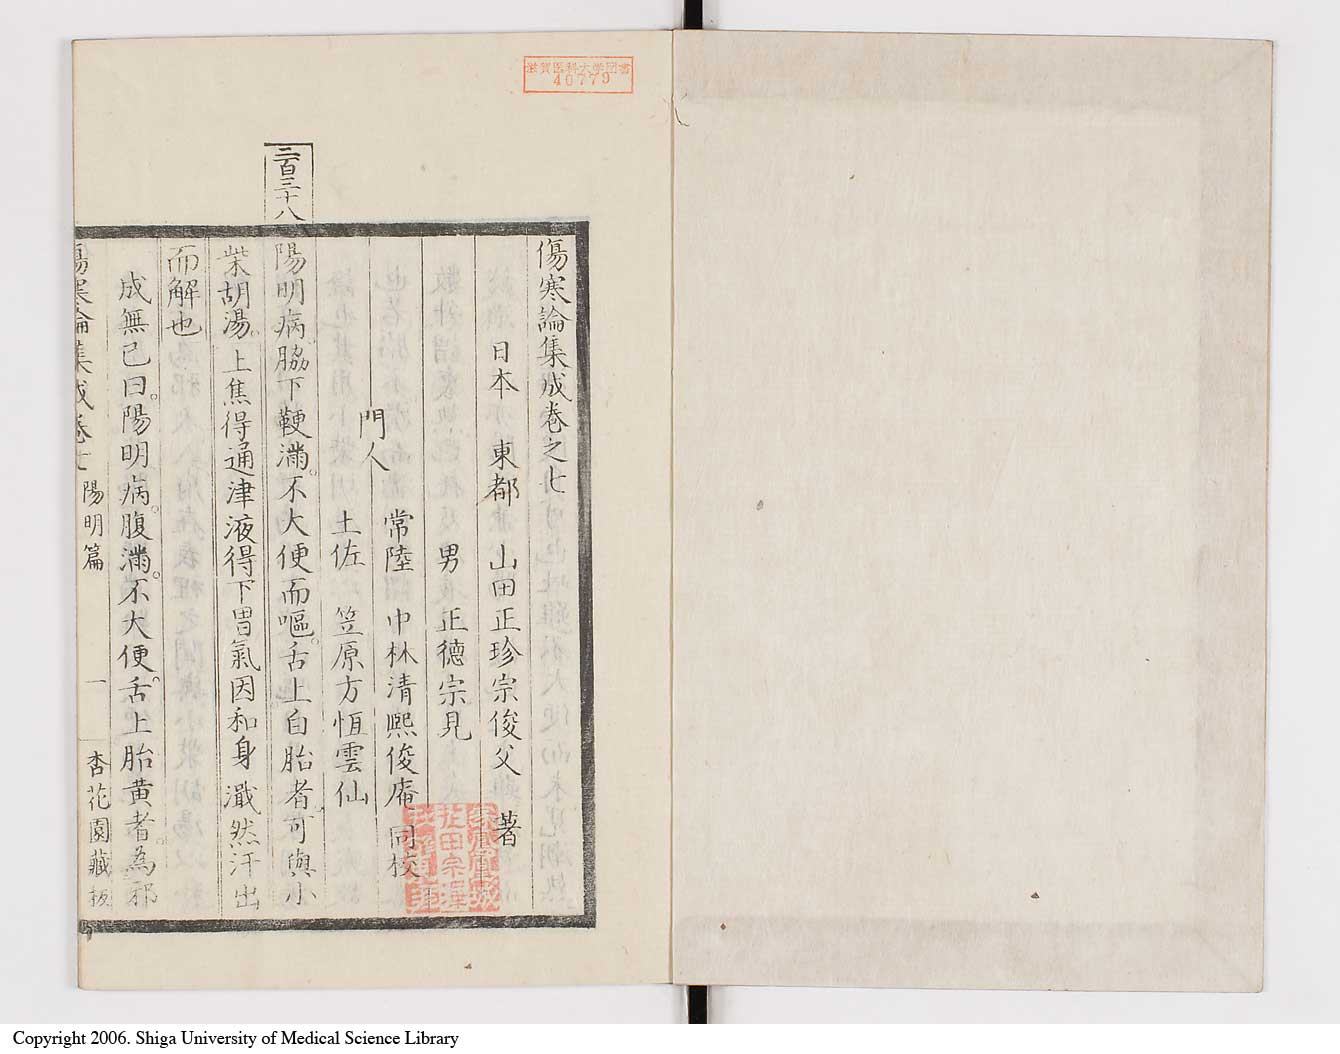 滋賀医科大学図書
40779
二百三十八
傷寒論集成卷之七
日本 東都 山田正珍宗俊父 著
男 正德宗見
門人 常陸 中林清熙俊庵 同校
土佐 笠原方恒雲仙
陽明病。脇下鞕滿。不大便而嘔。舌上白胎者。可與小
柴胡湯。上焦得通津液得下胃氣因和身濈然汗出
而解也
成無己曰。陽明病。腹滿。不大便。舌上胎黄者。為邪
傷寒論集成卷七 陽明篇 一 杏花園藏板
Copyright 2006. Shiga University of Medical Science Library